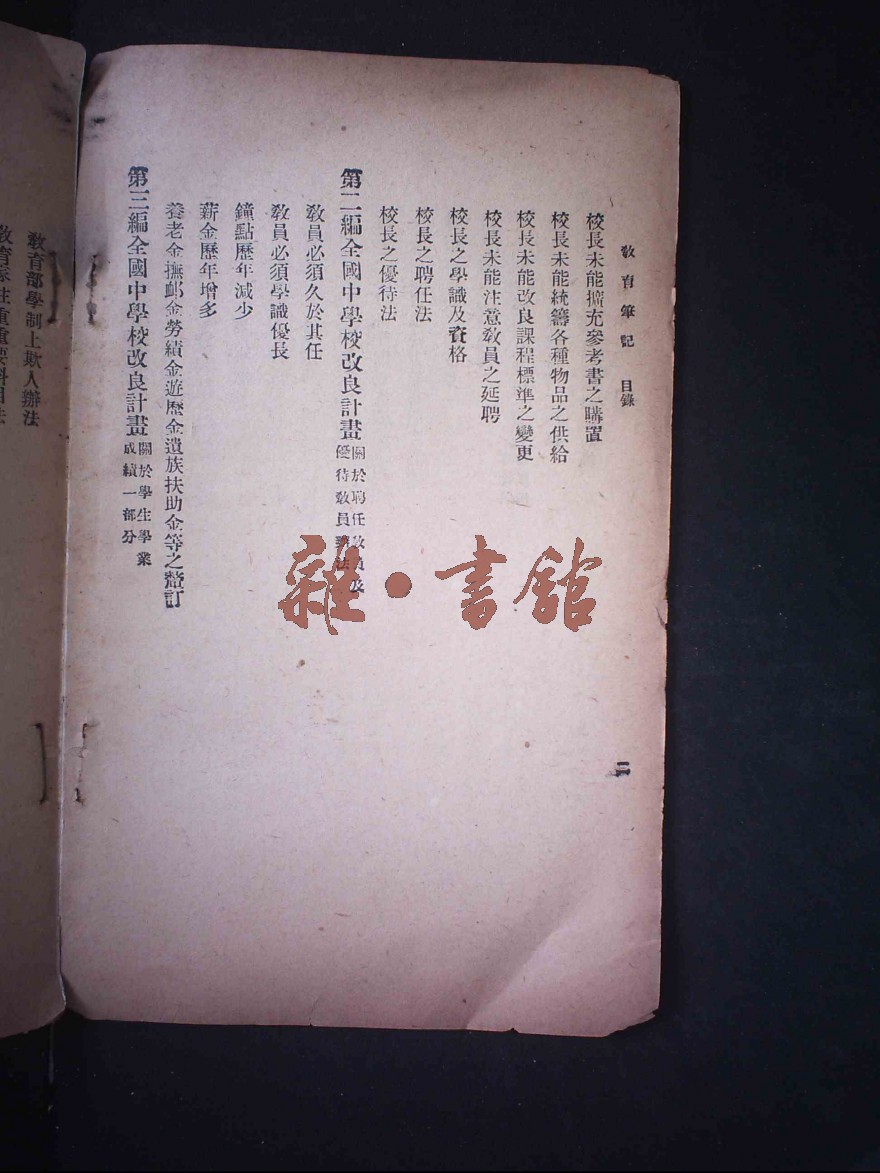 教育筆記 目錄
二
校長未能擴充參考書之購置
校長未能統籌各種物品之供給
校長未能改良課程標準之變更
校長未能注意教員之延聘
校長之學識及資格
校長之聘任法
校長之優待法
第二編全國中學校改良計畫
關於聘任教員及
優待教員辦法
教員必須久於其任
教員必須學識優長
鐘點歷年減少
薪金歷年增多
養老金撫卹金勞績金遊歷金遺族扶助金等之釐訂
第三編全國中學校改良計畫
關於學生學業
成績一部分
教育部學制上欺人辦法
雜·書館